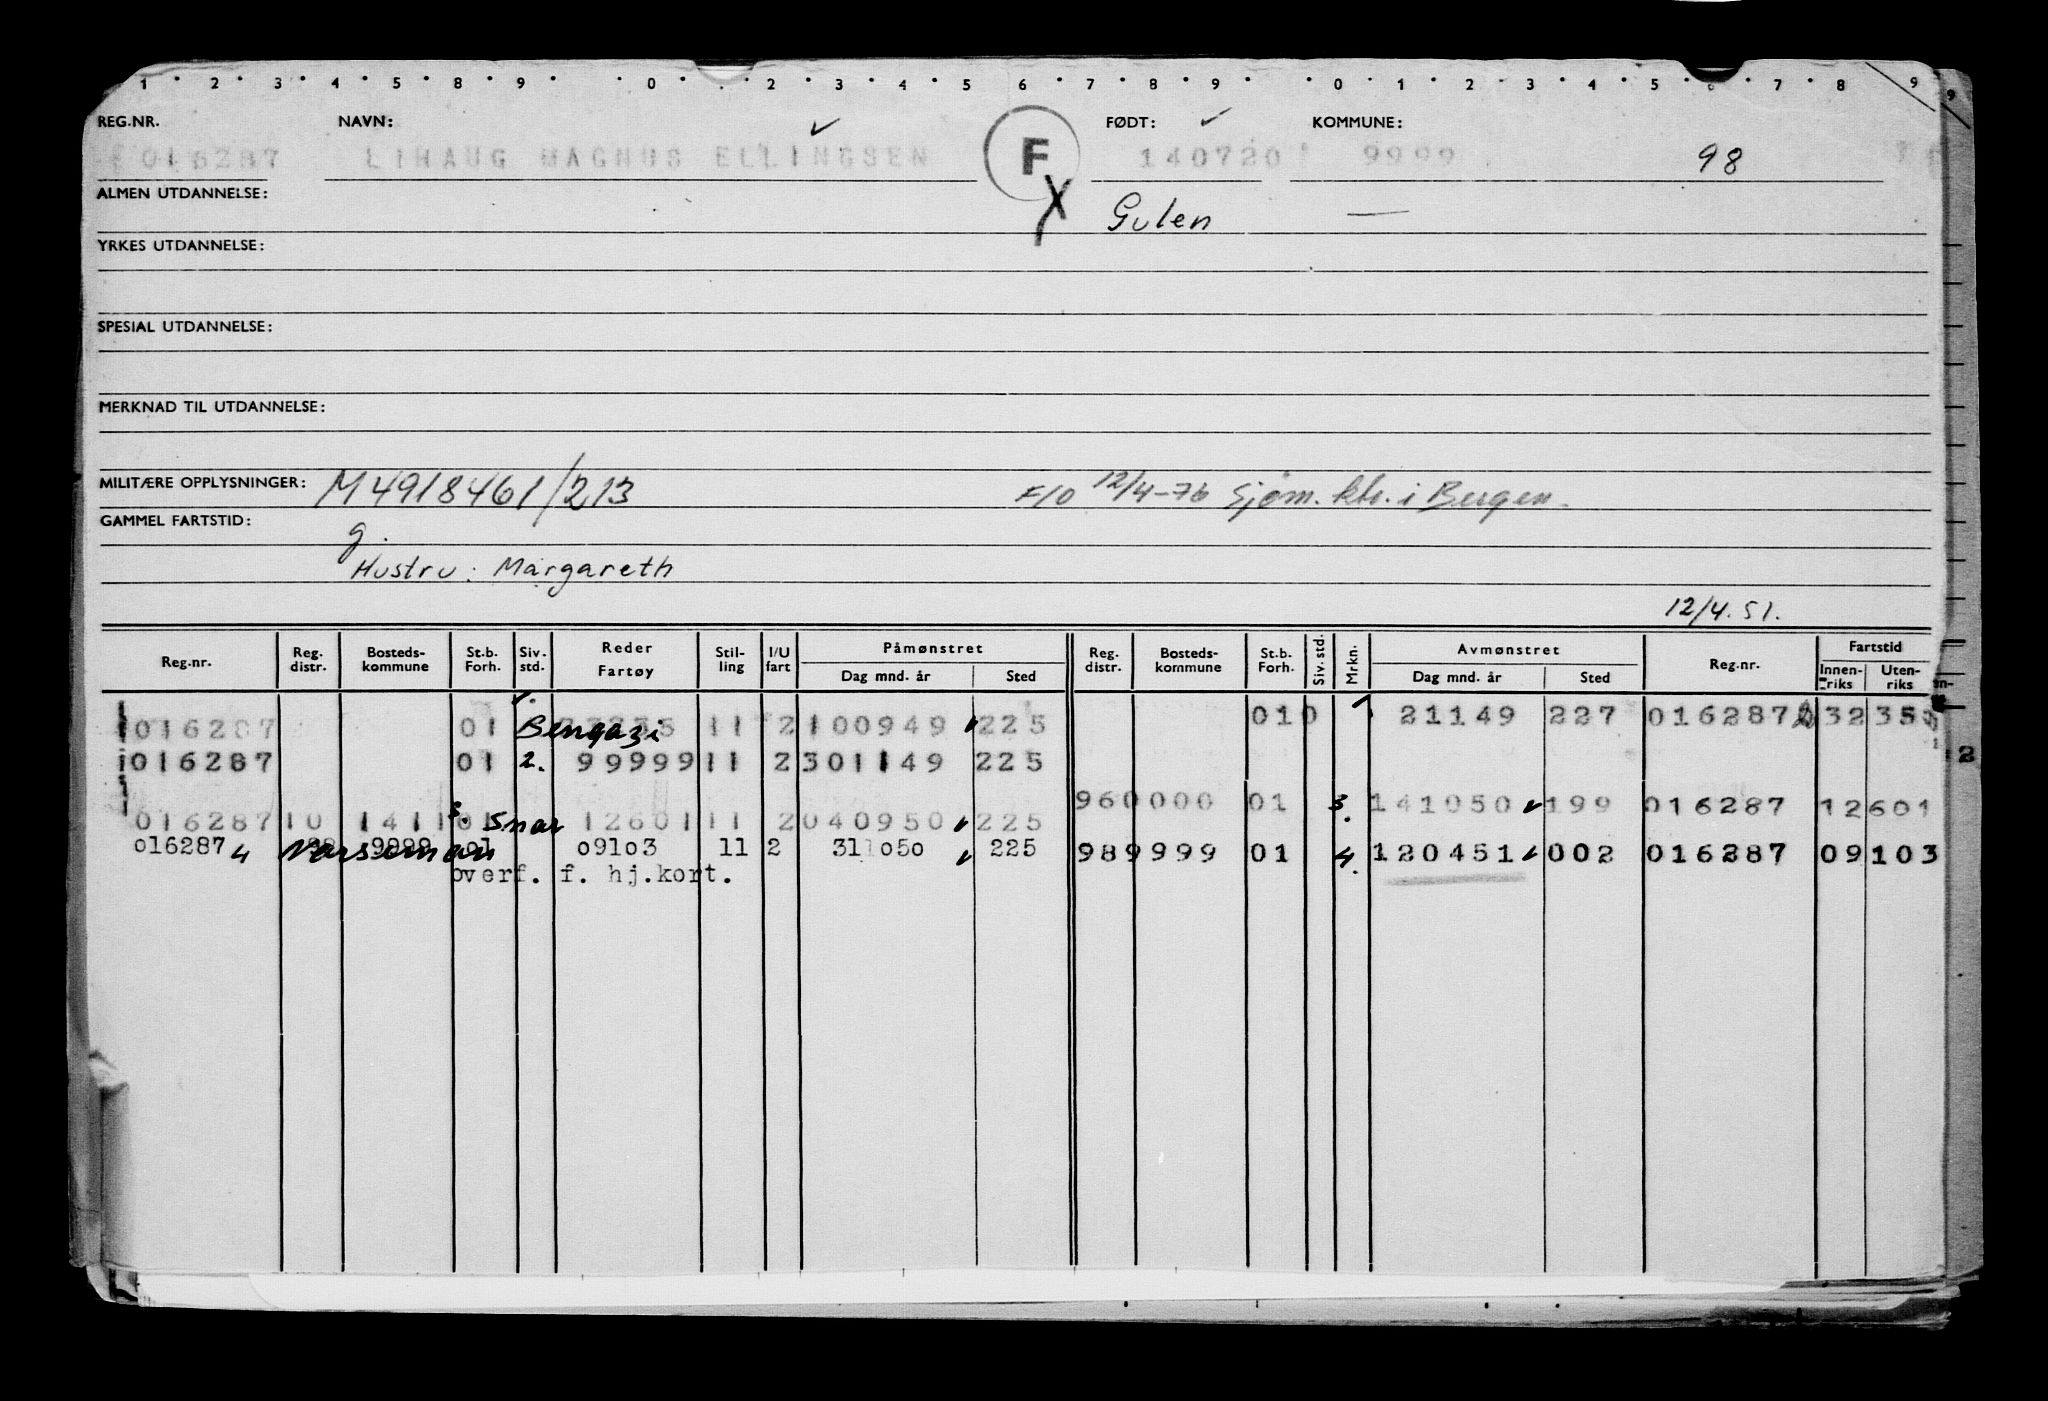 1 2 3 4 5 8 9 0 2 3 4 5 6 7 8 9 0 1 2 3 4 5 7 8 9
REG.NR. NAVN: FØDT: KOMMUNE:
016287 LIHAUG MAGNUS ELLINGSEN F 140720 9999 98
ALMEN UTDANNELSE: X Gulen —
YRKES UTDANNELSE:
SPESIAL UTDANNELSE:
MERKNAD TIL UTDANNELSE:
MILITÆRE OPPLYSNINGER: M4918461/213 F/O 12/4-76 Sjøm. ktr. i Bergen.
GAMMEL FARTSTID:
g.
Hustru: Margareth
12/4.51.
Reg.nr. Reg. distr. Bosteds-kommune St.b. Forh. Siv. std. Reder Fartøy Stil-ling I/U fart Påmønstret Dag mnd. år Sted Reg. distr. Bosteds-kommune St.b. Forh. Siv. std. Mrkn. Avmønstret Dag mnd. år Sted Reg.nr. Fartstid Innen-riks Uten-riks
016287 01 Bengazi 11 2 100949 225 010 21149 227 016287 32 35
016287 01 2. 99999 11 2 301149 225
960000 01 3. 141050 199 016287 12601
016287 10 1411 01 3. Snar 12601 11 2 040950 225
016287 4 Norseman 9999 01 09103 11 2 311050 225 989999 01 4. 120451 002 016287 09103
overf. f. hj.kort.